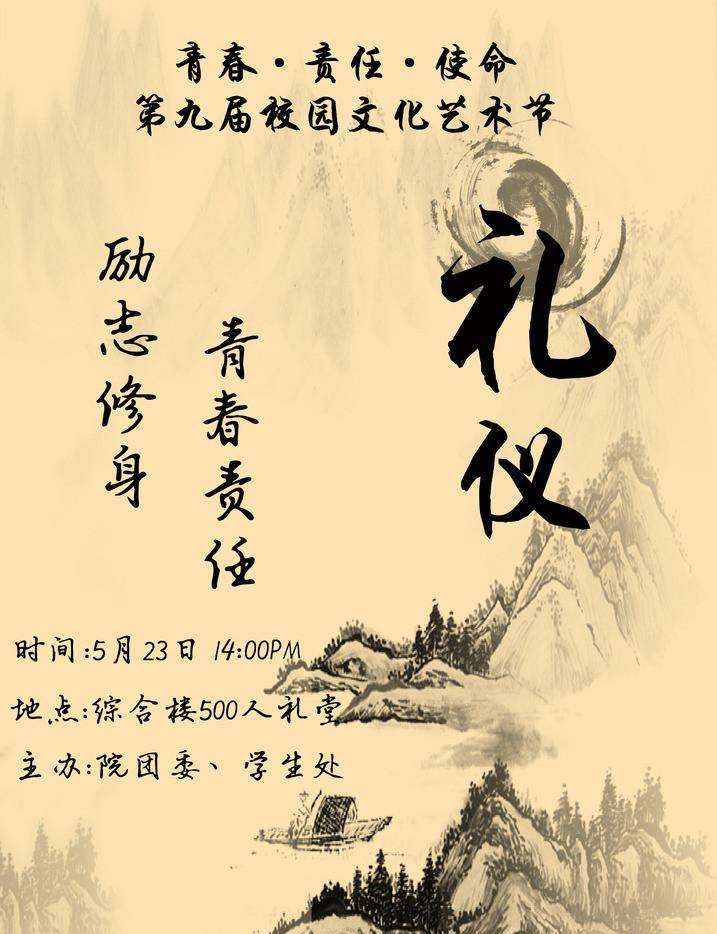 青春·责任·使命
第九届校园文化艺术节
礼仪
励志修身
青春责任
时间:5月23日 14:00PM
地点:综合楼500人礼堂
主办:院团委、学生处